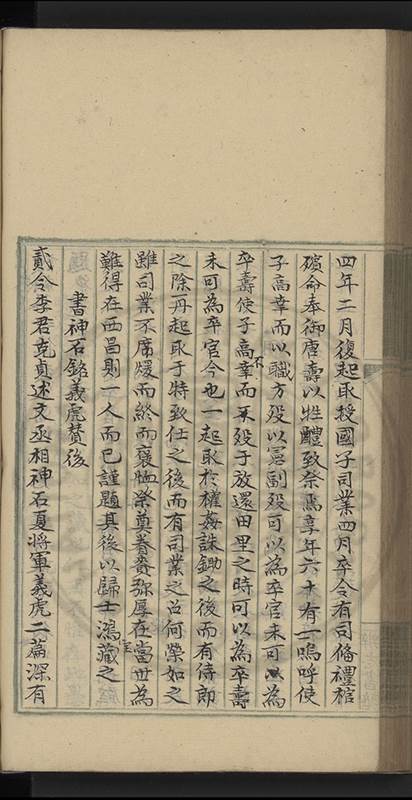 四年二月復起取授國子司業四月卒令有司備禮棺
殯命奉御唐壽以牲醴致祭焉享年六十有一嗚呼使
子高幸而以職方歿以憲副歿可以為卒官未可以為
卒壽使子高不幸而夭歿于放還田里之時可以為卒壽
未可為卒官今也一起取於權姦誅鋤之後而有侍郎
之除再起取于特致仕之後而有司業之召何榮如之
雖司業不席煖而終而褒恤榮奠眷賚弥厚在當世為
難得在西昌則一人而已謹題其後以歸士鴻藏之
書神石銘義虎贊後
貳令李君克貞述文丞相神石夏將軍義虎二篇深有